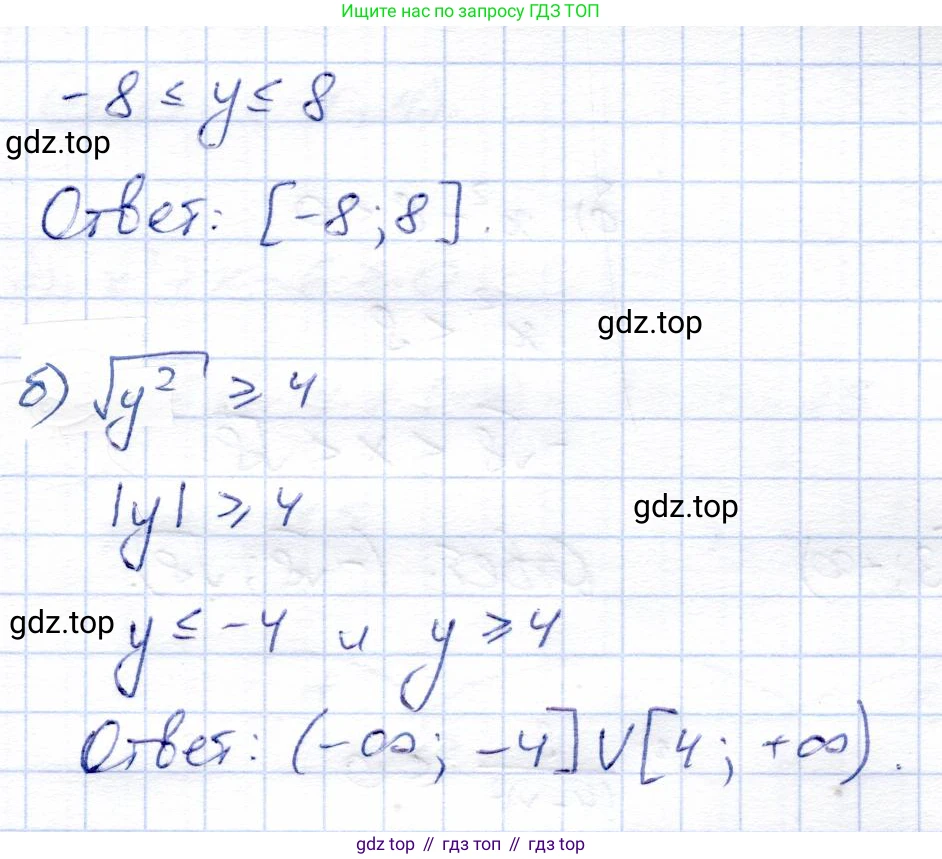 Ищите нас по запросу ГДЗ ТОП
-8 ≤ y ≤ 8
gdz.top
Ответ: [-8; 8].
gdz.top
б) √y² ≥ 4
|y| ≥ 4
gdz.top
gdz.top
y ≤ -4 и y ≥ 4
Ответ: (-∞; -4] ∪ [4; +∞).
gdz.top // гдз топ // gdz top